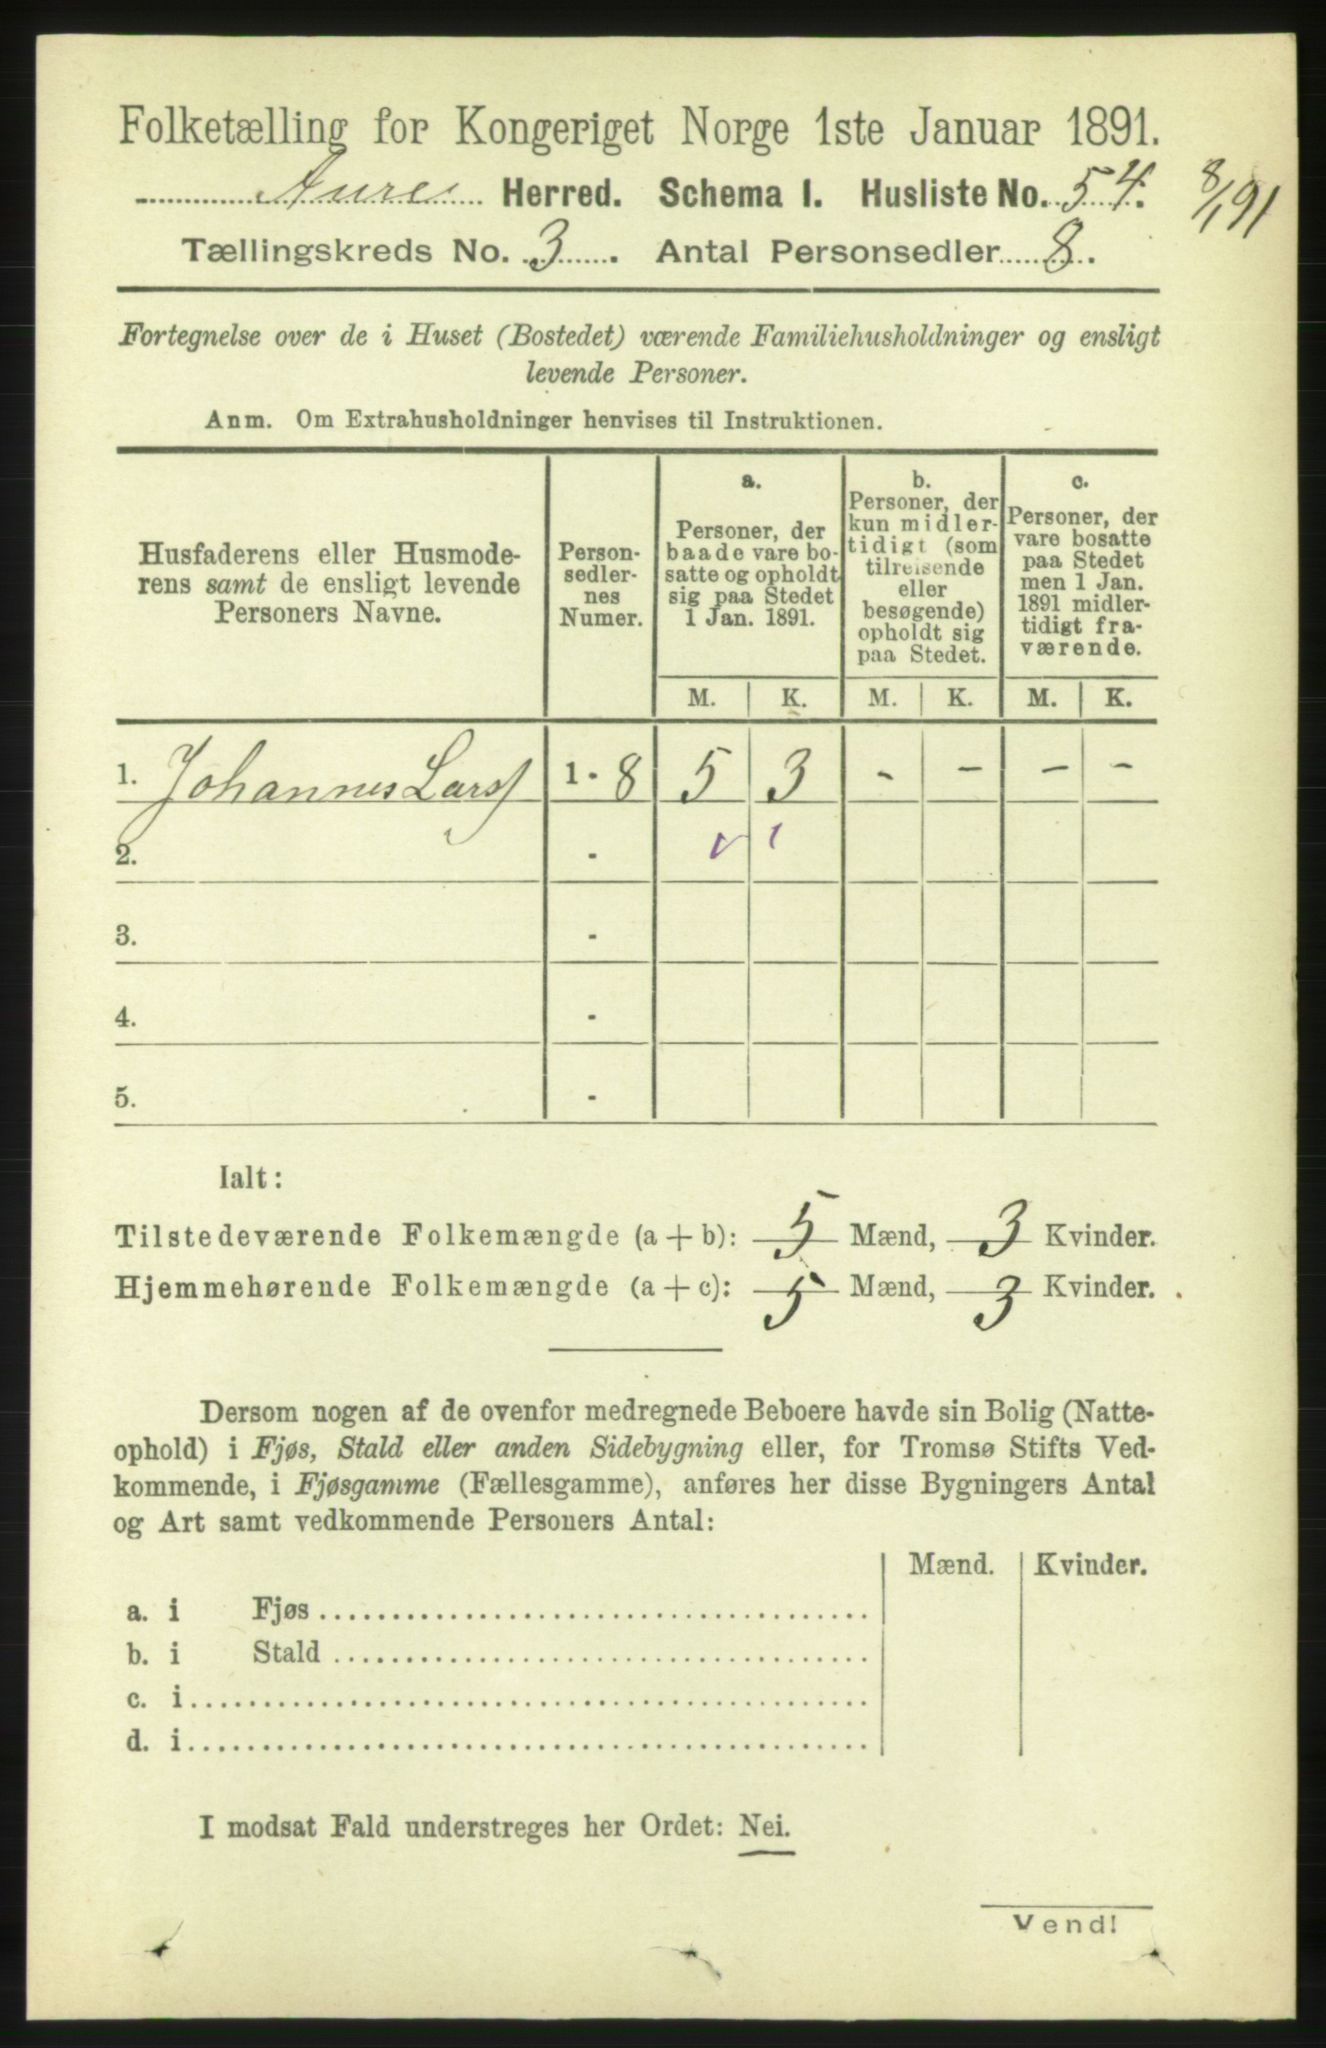 Folketælling for Kongeriget Norge 1ste Januar 1891.
Aure Herred. Schema I. Husliste No. 54.
8/1 91
Tællingskreds No. 3. Antal Personsedler 8.
Fortegnelse over de i Huset (Bostedet) værende Familiehusholdninger og ensligt
levende Personer.
Anm. Om Extrahusholdninger henvises til Instruktionen.
Husfaderens eller Husmode-
rens samt de ensligt levende
Personers Navne.
Person-
sedler-
nes
Numer.
a.
Personer, der
baade vare bo-
satte og opholdt
sig paa Stedet
1 Jan. 1891.
b.
Personer, der
kun midler-
tidigt (som
tilreisende
eller
besøgende)
opholdt sig
paa Stedet.
c.
Personer, der
vare bosatte
paa Stedet
men 1 Jan.
1891 midler-
tidigt fra-
værende.
M. K. M. K. M. K.
1. Johannes Lars 1 - 8 5 3 - - - -
2. -
3. -
4. -
5. -
Ialt:
Tilstedeværende Folkemængde (a + b): 5 Mænd, 3 Kvinder.
Hjemmehørende Folkemængde (a + c): 5 Mænd, 3 Kvinder.
Dersom nogen af de ovenfor medregnede Beboere havde sin Bolig (Natte-
ophold) i Fjøs, Stald eller anden Sidebygning eller, for Tromsø Stifts Ved-
kommende, i Fjøsgamme (Fællesgamme), anføres her disse Bygningers Antal
og Art samt vedkommende Personers Antal:
Mænd. Kvinder.
a. i Fjøs
b. i Stald
c. i
d. i
I modsat Fald understreges her Ordet: Nei.
Vend!